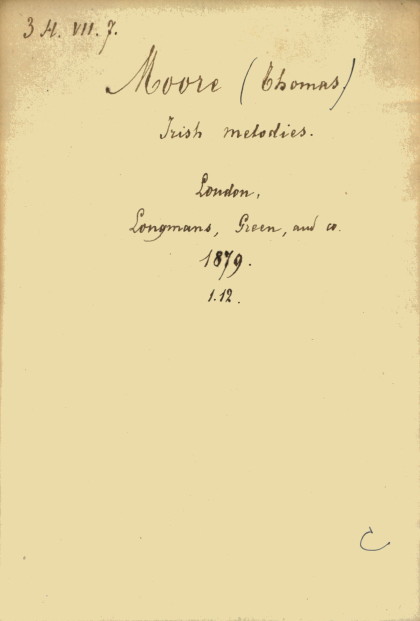 3 H. VII. 7.
Moore (Thomas)
Irish melodies.
London,
Longmans, Green, and co.
1879.
1.12.
C